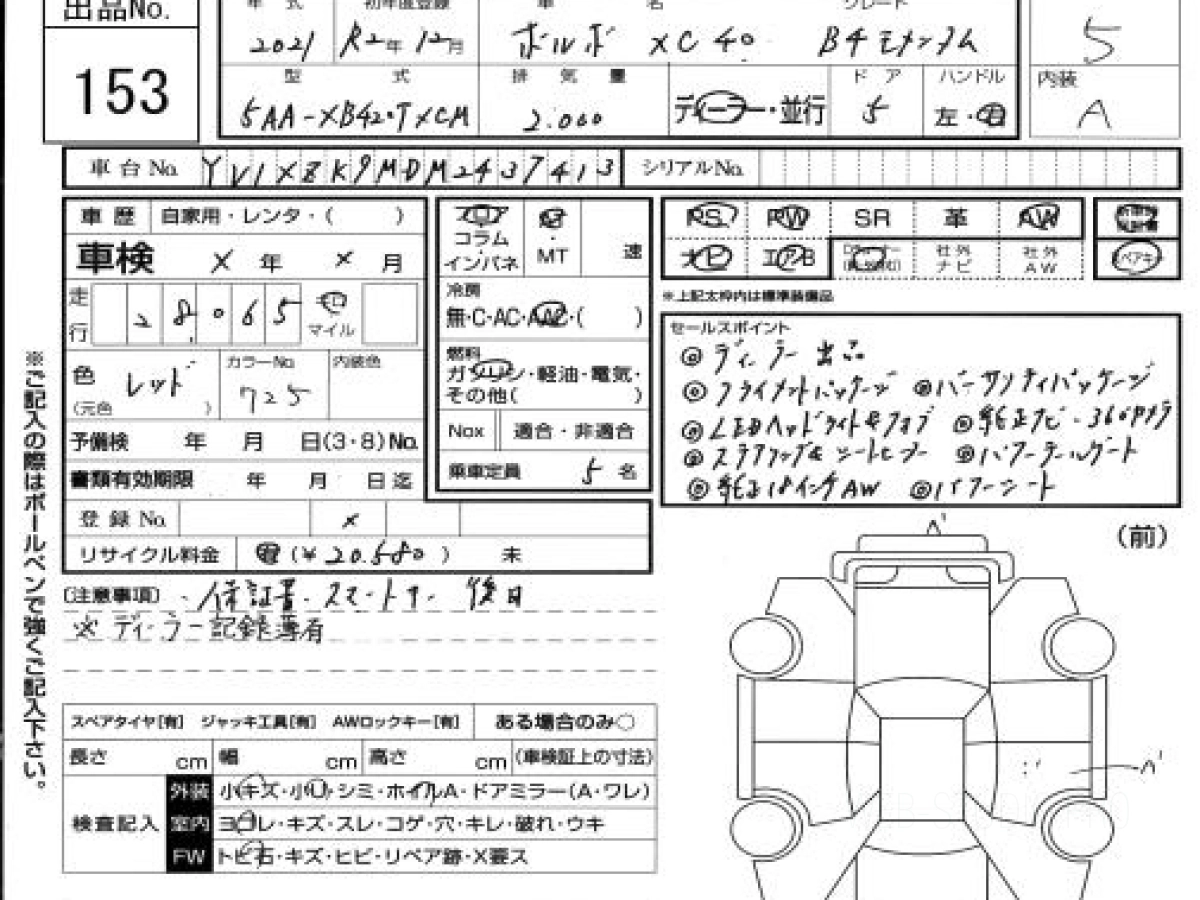 出品No. 年式 初年度登録 車名 グレード
153 2021 R2年12月 ボルボ XC40 B4モメンタム 5
型式 排気量 ドア ハンドル 内装
5AA-XB42・TXCM 2.000 ディーラー・並行 5 左・右 A
車台No. YV1XZK9MDM2437413 シリアルNo.
車歴 自家用・レンタ・( )
車検 × 年 × 月
走行 28.065 マイル
色 レッド カラーNo. 725 内装色
(元色 )
予備検 年 月 日(3・8)No.
書類有効期限 年 月 日迄
登録No. ×
リサイクル料金 (¥20.580) 未
コラム
インパネ
MT 速
冷房
無・C・AC・AAC・( )
燃料
ガソリン・軽油・電気・
その他( )
Nox 適合・非適合
乗車定員 5名
PS PW SR 革 AW
ナビ エアB 社外ナビ 社外AW スペアキー
※上記太枠内は標準装備品
セールスポイント
◎ディーラー出品
◎クライメントパッケージ ◎パーサンティパッケージ
◎LEDヘッドライト&フォグ ◎純正ナビ・360カメラ
◎ステアリング&シートヒーター ◎パワーテールゲート
◎純正18インチAW ◎パワーシート
(前)
A'
A'
〔注意事項〕・保証書・スマートキー 後日
※ディーラー記録簿有
スペアタイヤ[有] ジャッキ工具[有] AWロックキー[有] ある場合のみ○
長さ cm 幅 cm 高さ cm (車検証上の寸法)
検査記入
外装 小キズ・小凹・シミ・ホイルA・ドアミラー(A・ワレ)
室内 ヨゴレ・キズ・スレ・コゲ・穴・キレ・破れ・ウキ
FW トビ石・キズ・ヒビ・リペア跡・X要ス
※ご記入の際はボールペンで強くご記入下さい。